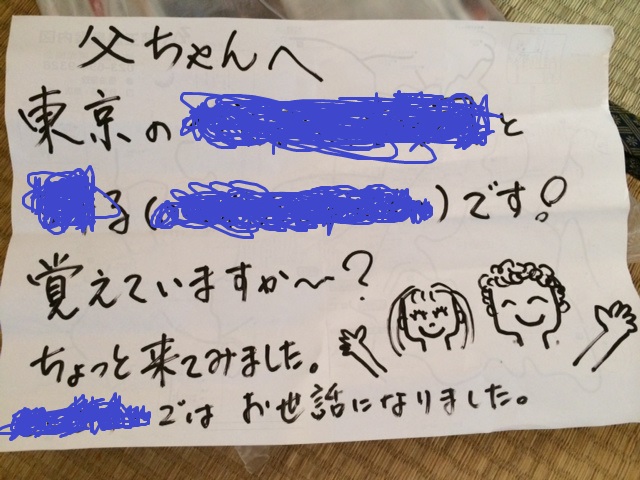 父ちゃんへ
東京の と
子( )です!
覚えていますか〜?
ちょっと来てみました。
では お世話になりました。